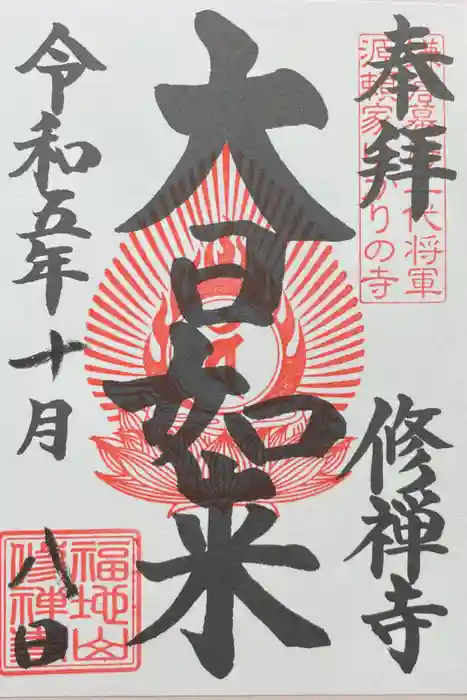 奉拝
鎌倉幕府二代将軍
源頼家ゆかりの寺
修禅寺
大日如来
令和五年十月
八日
福地山
修禅寺